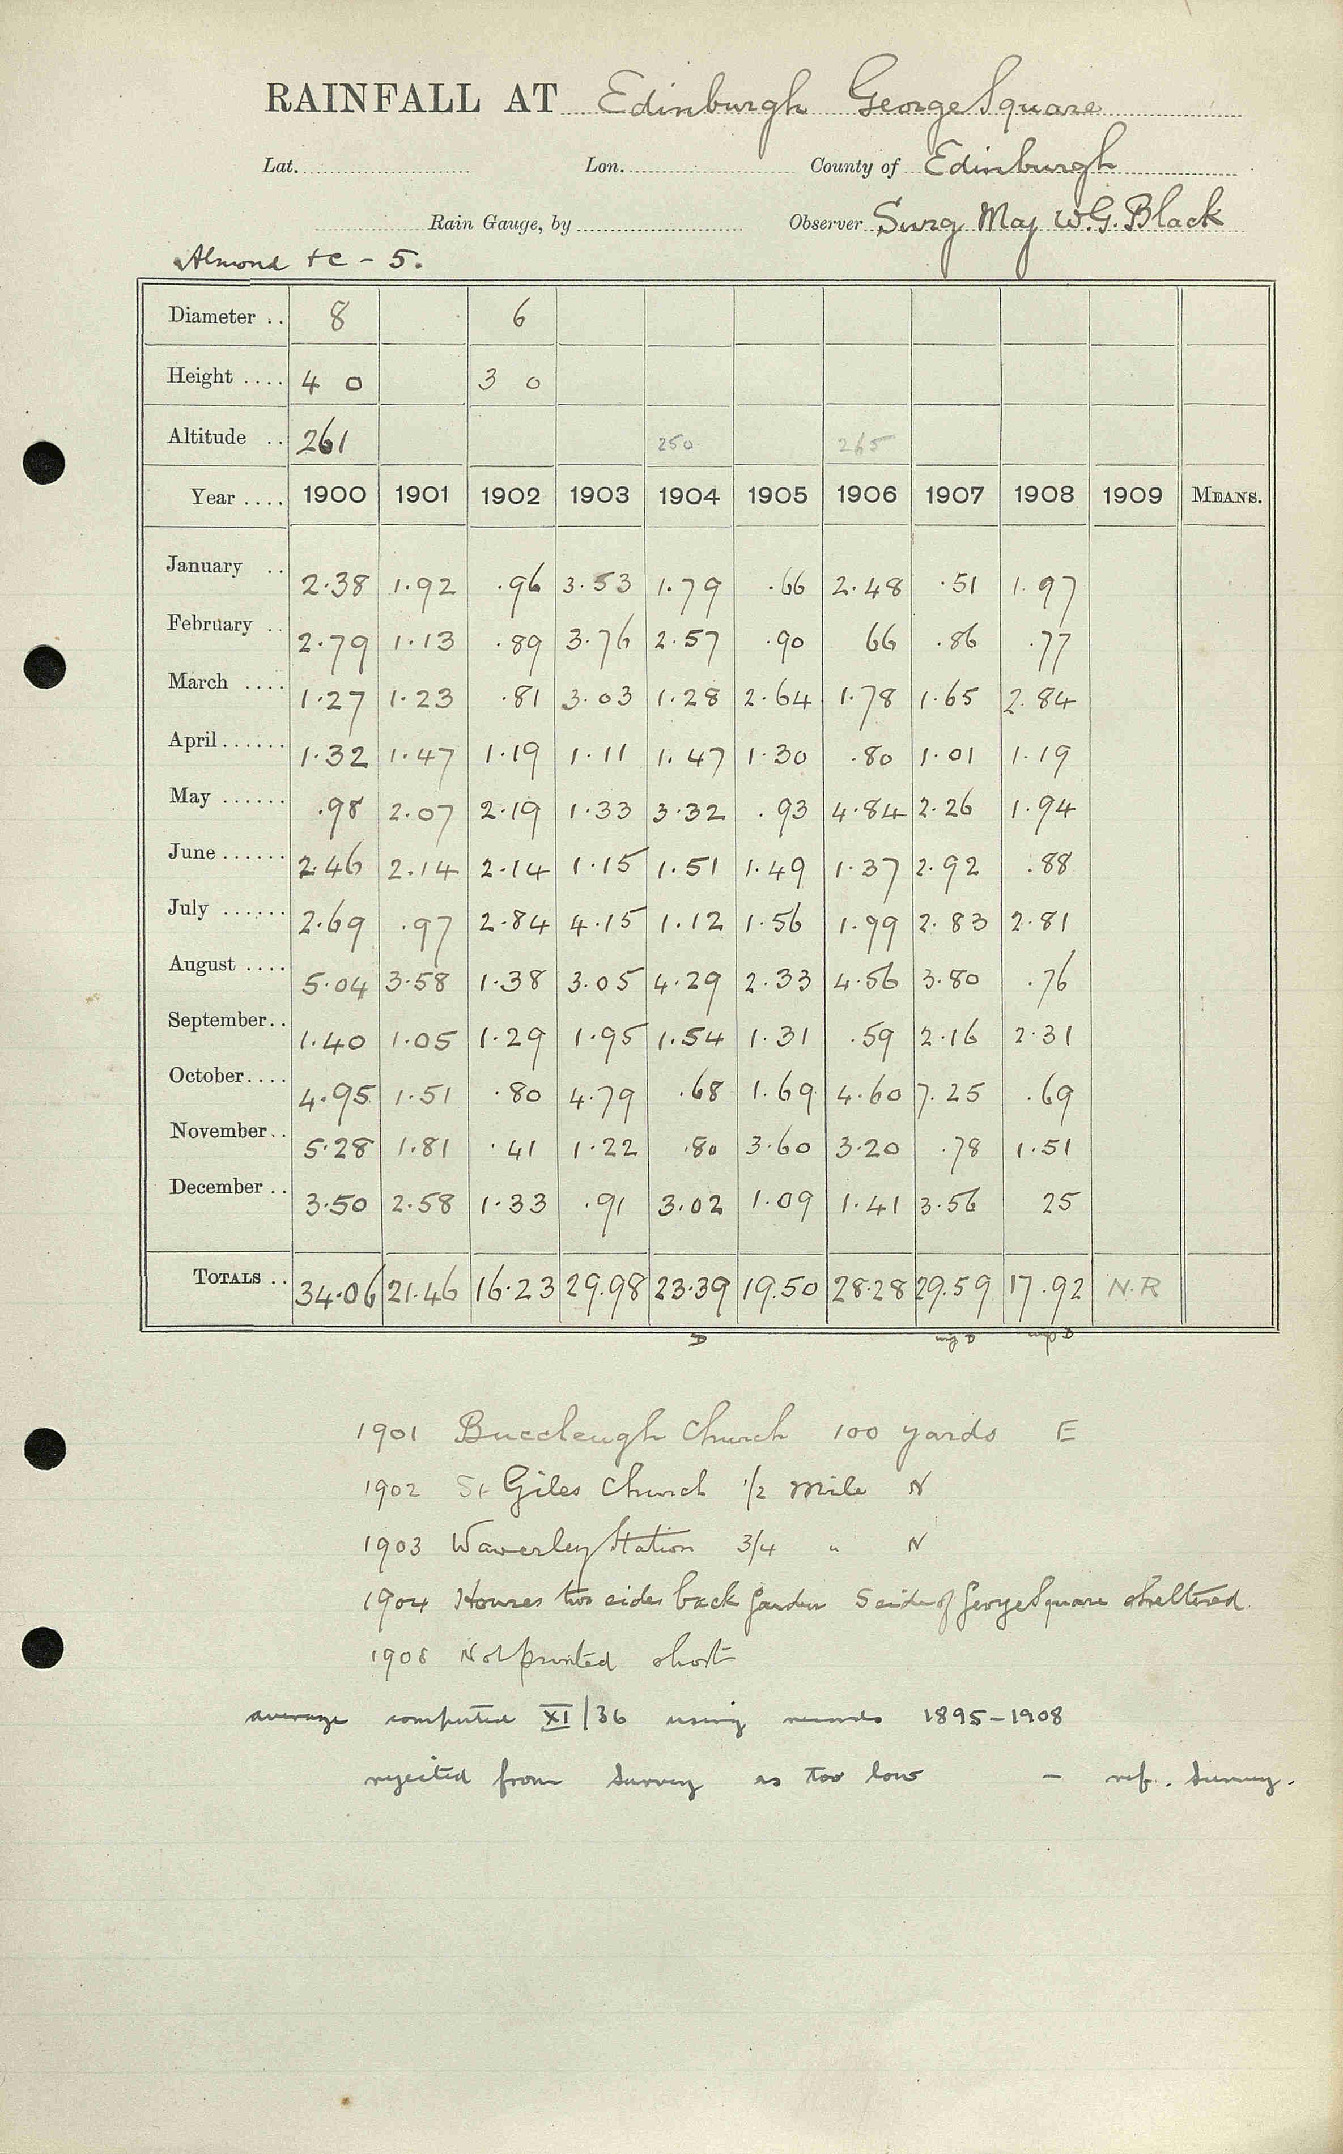 RAINFALL AT Edinburgh George Square
Lat. Lon. County of Edinburgh
Rain Gauge, by Observer Surg Maj W.G. Black
Almond &c - 5.
Diameter .. 8 6
Height .... 4 0 3 0
Altitude .. 261 250 265
Year .... 1900 1901 1902 1903 1904 1905 1906 1907 1908 1909 MEANS.
January .. 2.38 1.92 .96 3.53 1.79 .66 2.48 .51 1.97
February .. 2.79 1.13 .89 3.76 2.57 .90 66 .86 .77
March .... 1.27 1.23 .81 3.03 1.28 2.64 1.78 1.65 2.84
April...... 1.32 1.47 1.19 1.11 1.47 1.30 .80 1.01 1.19
May ...... .98 2.07 2.19 1.33 3.32 .93 4.84 2.26 1.94
June...... 2.46 2.14 2.14 1.15 1.51 1.49 1.37 2.92 .88
July ...... 2.69 .97 2.84 4.15 1.12 1.56 1.99 2.83 2.81
August .... 5.04 3.58 1.38 3.05 4.29 2.33 4.56 3.80 .76
September.. 1.40 1.05 1.29 1.95 1.54 1.31 .59 2.16 2.31
October.... 4.95 1.51 .80 4.79 .68 1.69 4.60 7.25 .69
November.. 5.28 1.81 .41 1.22 .80 3.60 3.20 .78 1.51
December .. 3.50 2.58 1.33 .91 3.02 1.09 1.41 3.56 25
TOTALS .. 34.06 21.46 16.23 29.98 23.39 19.50 28.28 29.59 17.92 N.R
D D D
1901 Buccleugh Church 100 yards E
1902 St Giles Church 1/2 mile N
1903 Waverley Station 3/4 " N
1904 Houses two sides back garden S side of George Square sheltered.
1908 Not printed short
average computed XI/36 using records 1895-1908
rejected from Survey as too low - ref. Survey.